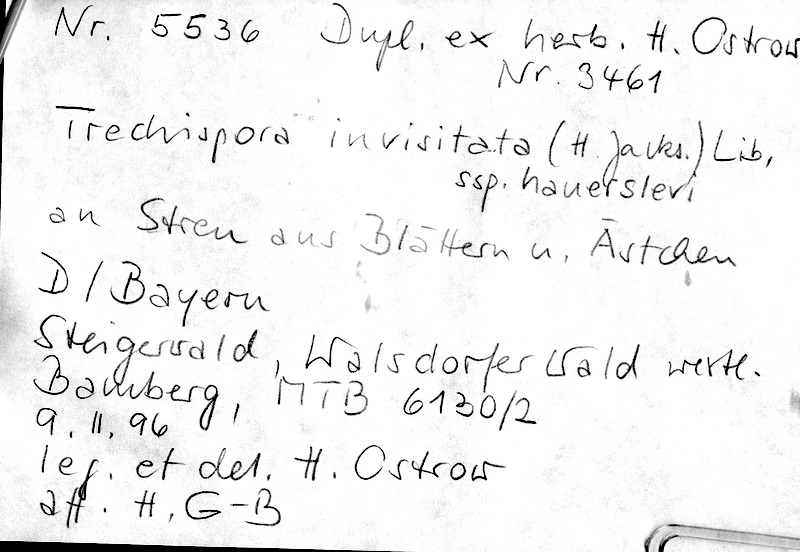 Nr. 5536 Dupl. ex herb. H. Ostrow
Nr. 3461
Trechispora invisitata (H. Jacks.) Lib,
ssp. hauerslevi
an Streu aus Blättern u. Ästchen
D / Bayern
Steigerwald, Walsdorfer Wald westl.
Bamberg, MTB 6130/2
9. 11. 96
leg. et det. H. Ostrow
aff. H. G-B